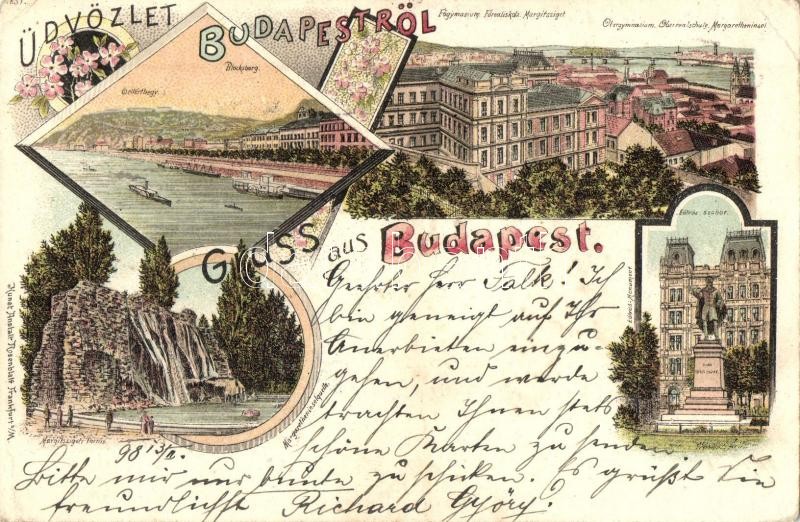 ÜDVÖZLET
BUDAPESTRŐL
Blocksberg.
Gellérthegy.
Főgymnasium, Főrealiskola, Margitsziget
Obergymnasium, Oberrealschule, Margaretheninsel.
Gruss aus Budapest.
Eötvös szobor.
Eötvös Monument
Margitszigeti forrás
Margaretheninselquelle.
Kunst Anstalt Rosenblatt Frankfurt a/M.
Geehrter Herr Falk! Ich
bin geneigt auf Ihr
Anerbieten einzu-
gehen, und werde
trachten Ihnen stets
schöne Karten zu senden
98
Bitte mir nur bunte zu schicken. Es grüßt Sie
freundlichst Richard Győry.